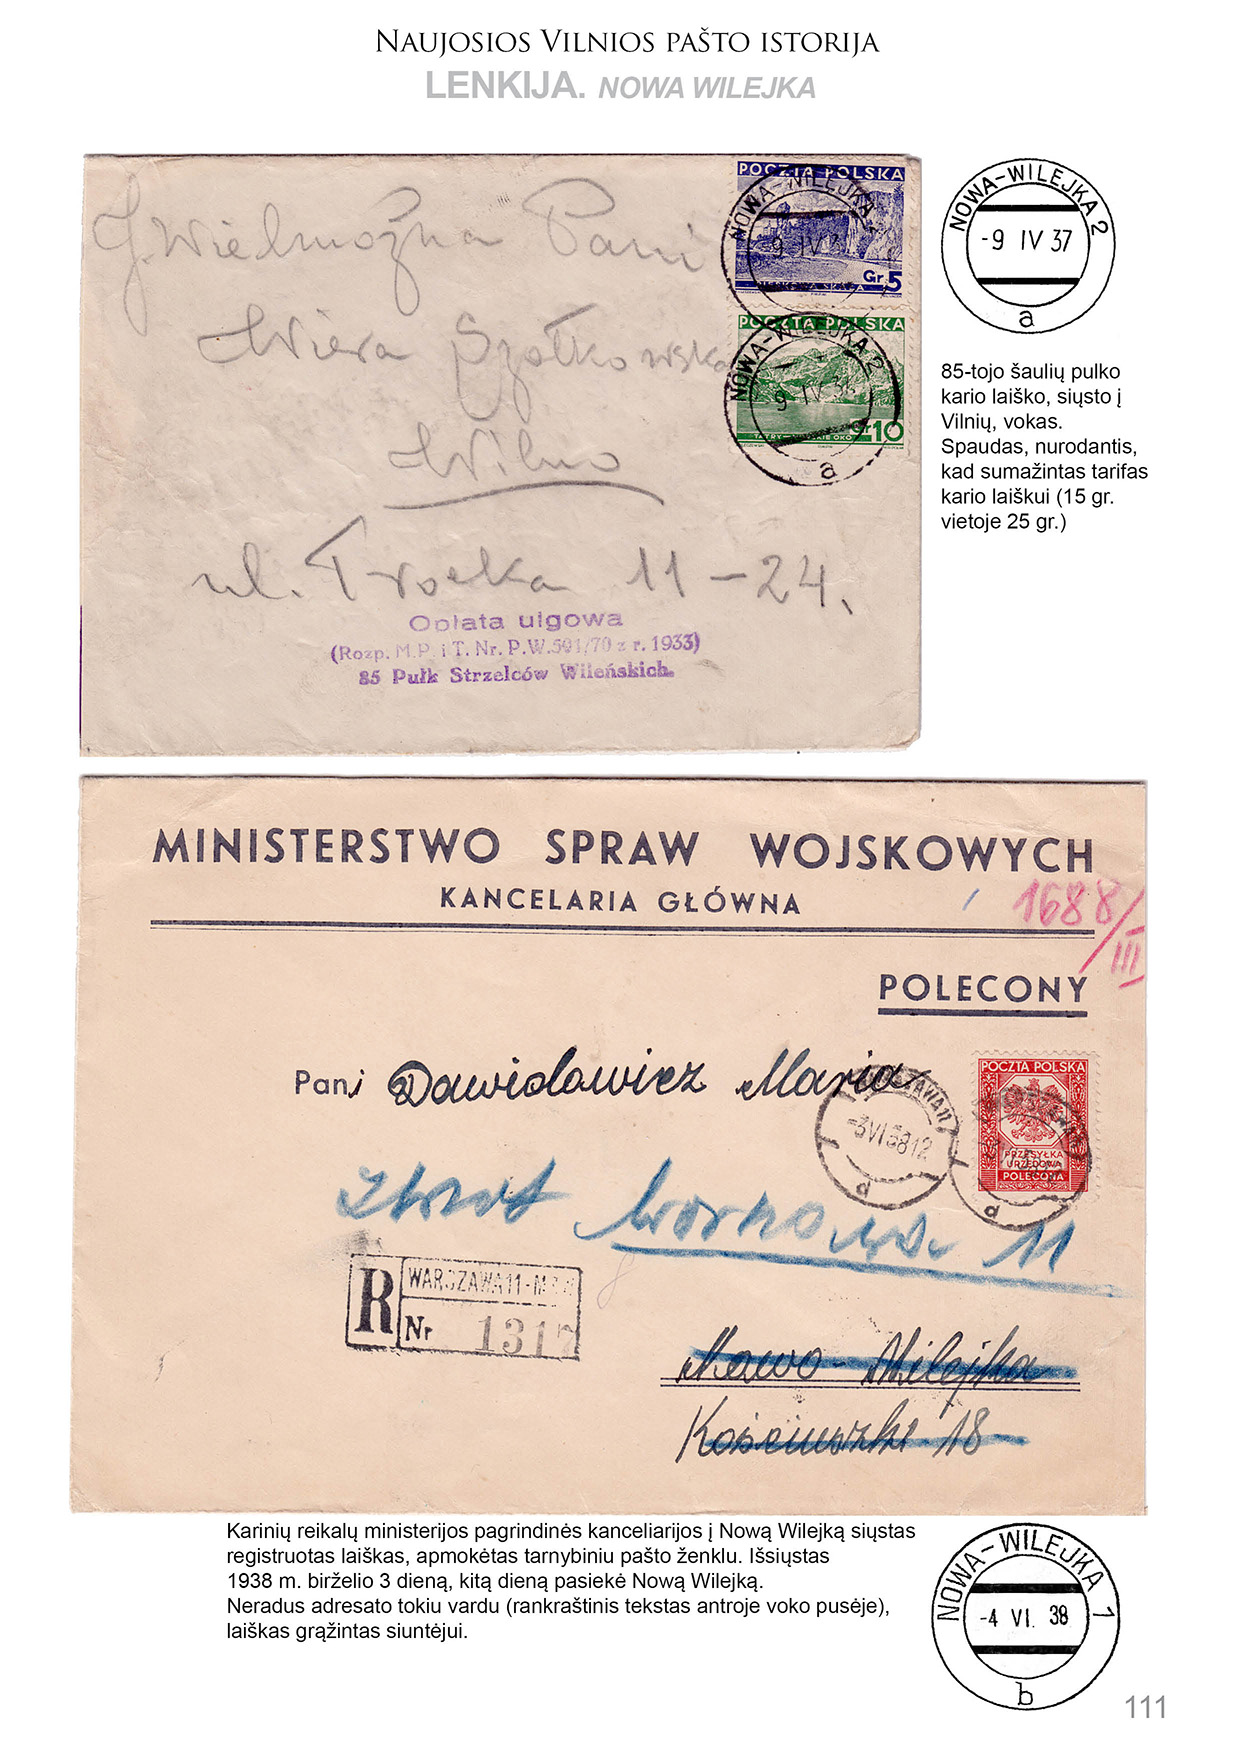 Naujosios Vilnios pašto istorija
LENKIJA. NOWA WILEJKA
J. Wielmożna Pani
Wiera Szołkowska
Wilno
ul. Trocka 11 – 24.
Opłata ulgowa
(Rozp. M.P. i T. Nr. P.W.501/70 z r. 1933)
85 Pułk Strzelców Wileńskich.
POCZTA POLSKA
Gr. 5
NOWA-WILEJKA 2
9 IV 37
POCZTA POLSKA
Gr 10
NOWA-WILEJKA 2
9 IV 37
a
NOWA-WILEJKA 2
-9 IV 37
a
85-tojo šaulių pulko
kario laiško, siųsto į
Vilnių, vokas.
Spaudas, nurodantis,
kad sumažintas tarifas
kario laiškui (15 gr.
vietoje 25 gr.)
MINISTERSTWO SPRAW WOJSKOWYCH
KANCELARIA GŁÓWNA
1688/III
POLECONY
Pani Dawidowicz Maria
WARSZAWA 11
-3 VI 38 12
d
POCZTA POLSKA
PRZESYŁKA
URZĘDOWA
POLECONA
d
Zwrot Warszawa 11
R
WARSZAWA 11 - M
Nr 1317
Nowo-Wilejka
Kościuszki 18
Karinių reikalų ministerijos pagrindinės kanceliarijos į Nową Wilejką siųstas
registruotas laiškas, apmokėtas tarnybiniu pašto ženklu. Išsiųstas
1938 m. birželio 3 dieną, kitą dieną pasiekė Nową Wilejką.
Neradus adresato tokiu vardu (rankraštinis tekstas antroje voko pusėje),
laiškas grąžintas siuntėjui.
NOWA-WILEJKA 1
-4 VI. 38
b
111